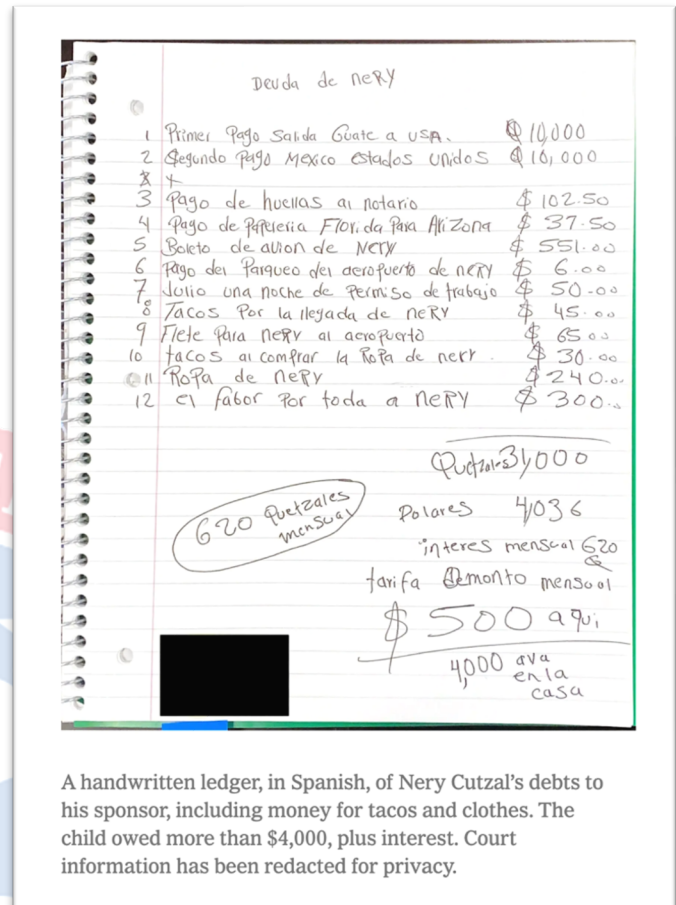 Deuda de neRy
1 Primer Pago Salida Guate a USA. Q 10,000
2 Segundo Pago Mexico estados unidos Q 10,000
3 Pago de huellas al notario $ 102.50
4 Pago de Papeleria Florida Para Arizona $ 37.50
5 Boleto de avion de Nery $ 551.00
6 Pago del Parqueo del aeropuerto de neRy $ 6.00
7 Julio una noche de Permiso de trabajo $ 50.00
8 Tacos Por la llegada de neRy $ 45.00
9 Flete Para neRy al aeropuerto $ 65 00
10 tacos al comprar la Ropa de nery. $ 30.00
11 Ropa de neRy $ 240.00
12 el fabor Por toda a neRy $ 300..
Quetzales 31,000
620 Quetzales
mensual
Dolares 4,036
interes mensual 620
Q
tarifa monto mensual
$ 500 aqui
4,000
en la
casa
A handwritten ledger, in Spanish, of Nery Cutzal’s debts to
his sponsor, including money for tacos and clothes. The
child owed more than $4,000, plus interest. Court
information has been redacted for privacy.